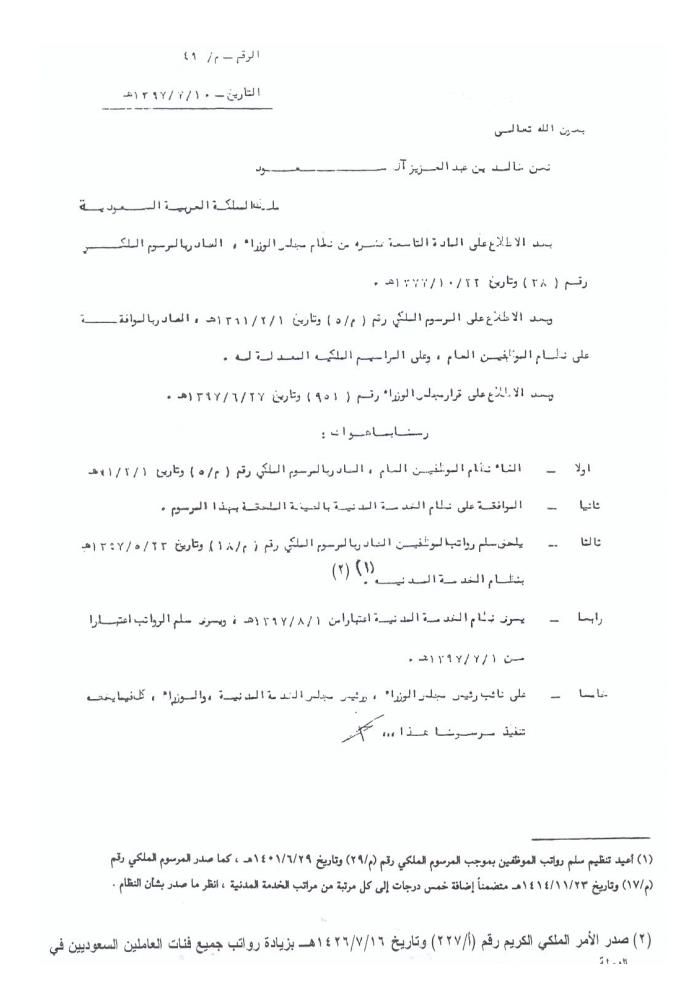 الرقم – م/ ٤٩
التاريخ – ١٣٩٧/٧/١٠هـ
بعون الله تعالى
نحن خالد بن عبدالعزيز آل سعـــــــود
ملك المملكة العربية السعوديـة
بعد الاطلاع على المادة التاسعة عشره من نظام مجلس الوزراء ، الصادر بالمرسوم الملكـــي
رقم ( ٣٨ ) وتاريخ ١٣٧٧/١٠/٢٢هـ .
وبعد الاطلاع على المرسوم الملكي رقم ( م/٥ ) وتاريخ ١٣٩١/٢/١هـ ، الصادر بالموافقـــة
على نظـام الموظفيـن العام ، وعلى المراسيم الملكيه المعدلـة له .
وبعد الاطلاع على قرار مجلس الوزراء رقم ( ٩٥١ ) وتاريخ ١٣٩٧/٦/٢٧هـ .
رسمنا بما هـو آت :
اولا – الغاء نظام الموظفيـن العام ، الصادر بالمرسوم الملكي رقم ( م/٥ ) وتاريخ ٩١/٢/١هـ
ثانيا – الموافقة على نظام الخدمـة المدنيـة بالصيغة الملحقـة بهذا المرسوم .
ثالثا – يلحق سلم رواتب الموظفيـن الصادر بالمرسوم الملكي رقم ( م/١٨ ) وتاريخ ١٣٩٧/٥/٢٣هـ
بنظـام الخدمـة المدنيـــه . (١) (٢)
رابعا – يسرى نظام الخدمـة المدنيـة اعتبارا من ١٣٩٧/٨/١هـ ، ويسرى سلم الرواتب اعتبــارا
مـن ١٣٩٧/٧/١هـ .
خامسا – على نائب رئيس مجلس الوزراء ، ورئيس مجلس الخدمة المدنيـة ، والوزراء ، كل فيما يخصه
تنفيذ مرسومنـا هـذا ,,,
(١) أعيد تنظيم سلم رواتب الموظفين بموجب المرسوم الملكي رقم (م/٢٩) وتاريخ ١٤٠١/٦/٢٩هـ ، كما صدر المرسوم الملكي رقم
(م/١٧) وتاريخ ١٤١٤/١١/٢٣هـ متضمناً إضافة خمس درجات إلى كل مرتبة من مراتب الخدمة المدنية ، انظر ما صدر بشأن النظام .
(٢) صدر الأمر الملكي الكريم رقم (أ/٢٢٧) وتاريخ ١٤٢٦/٧/١٦هـ بزيادة رواتب جميع فئات العاملين السعوديين في